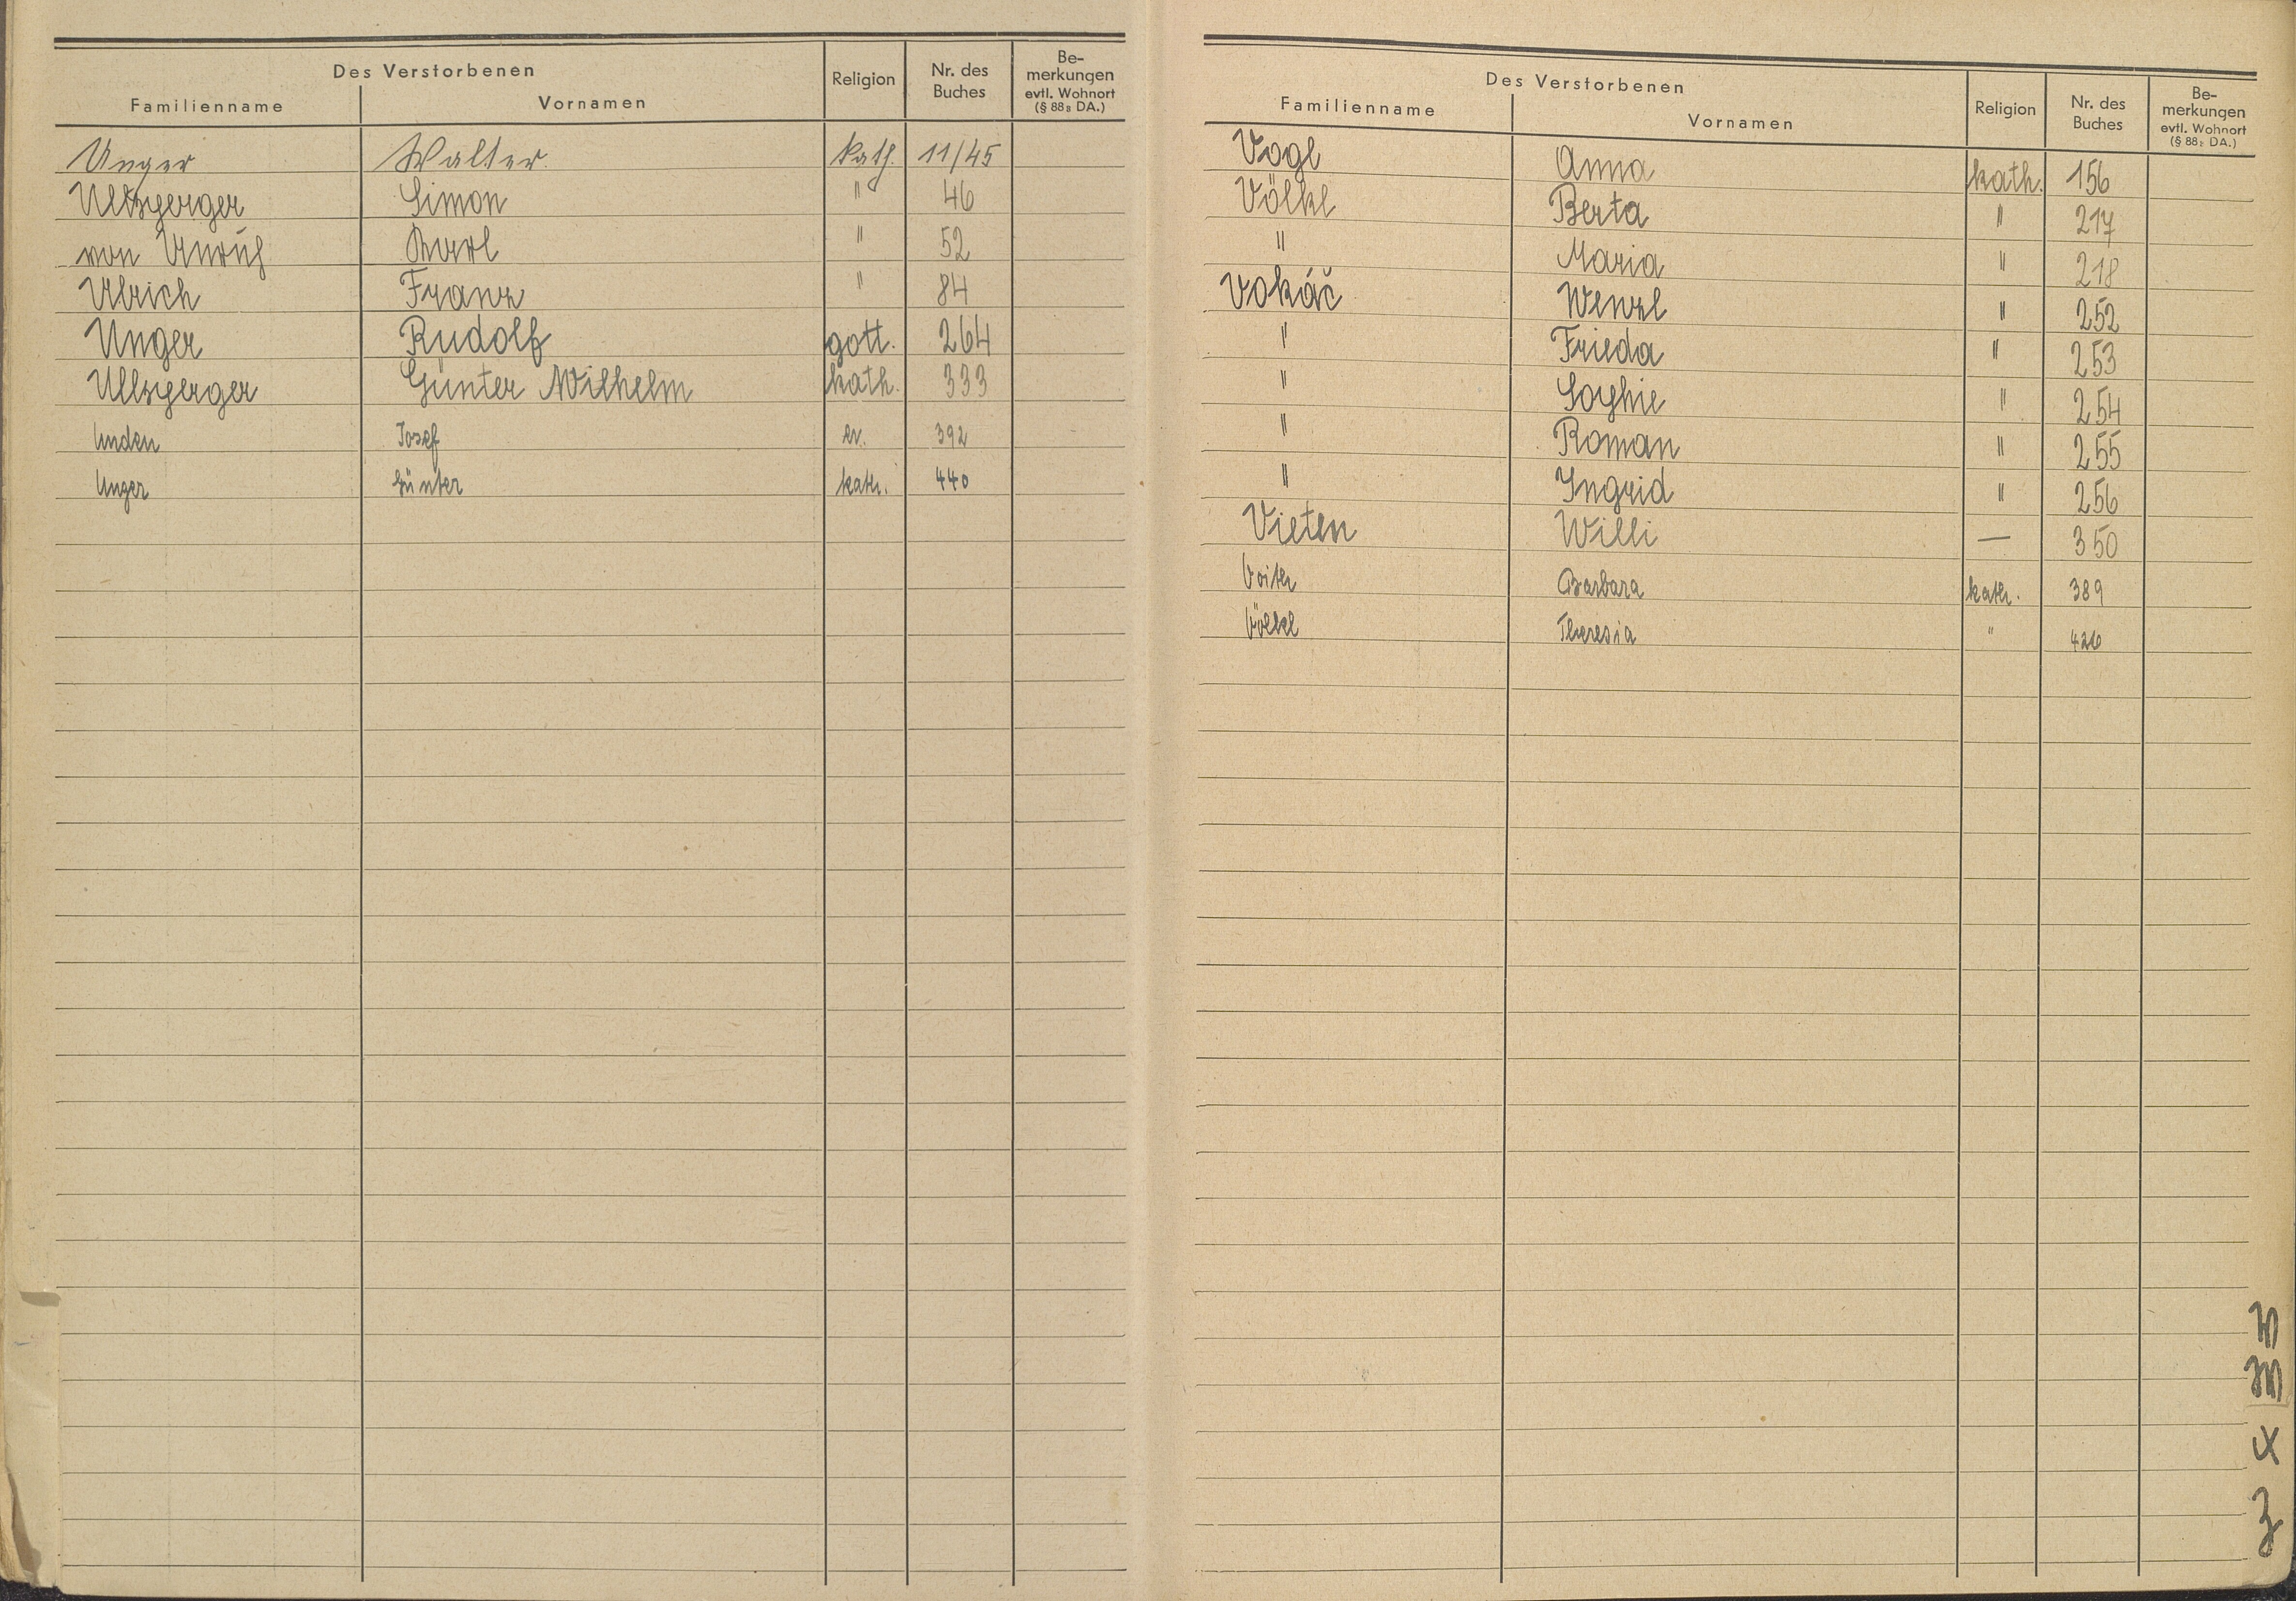 Des Verstorbenen
Familienname Vornamen Religion Nr. des Buches Be-merkungen evtl. Wohnort (§ 88₂ DA.)
Unger Walter kath. 11/45
Ultsperger Simon " 46
von Unruh Karl " 52
Ulrich Franz " 84
Unger Rudolf gott. 264
Ullsperger Günter Wilhelm kath. 333
Unden Josef ev. 392
Unger Günter kath. 440
Des Verstorbenen
Familienname Vornamen Religion Nr. des Buches Be-merkungen evtl. Wohnort (§ 88₂ DA.)
Vogl Anna kath. 156
Völkl Berta " 217
" Maria " 218
Vokáč Wenzl " 252
" Frieda " 253
" Sophie " 254
" Roman " 255
" Ingrid " 256
Vieten Willi — 350
Voith Barbara kath. 389
Völkl Theresia " 426
X
Z